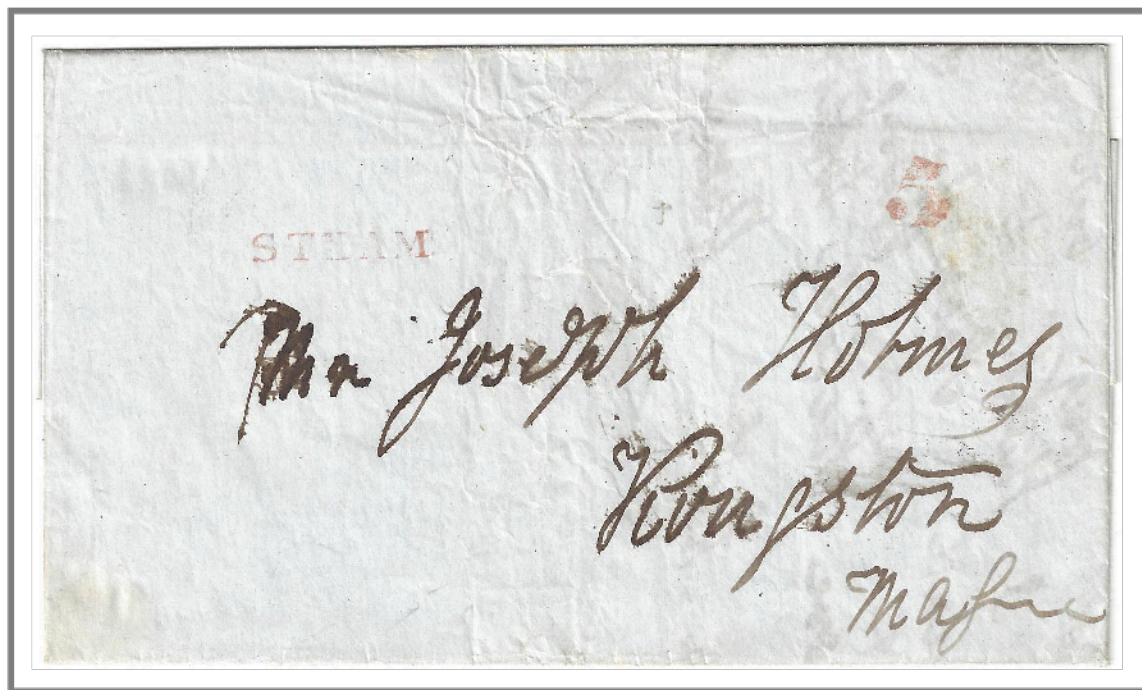 5
STEAM
Mr Joseph Holmes
Kingston